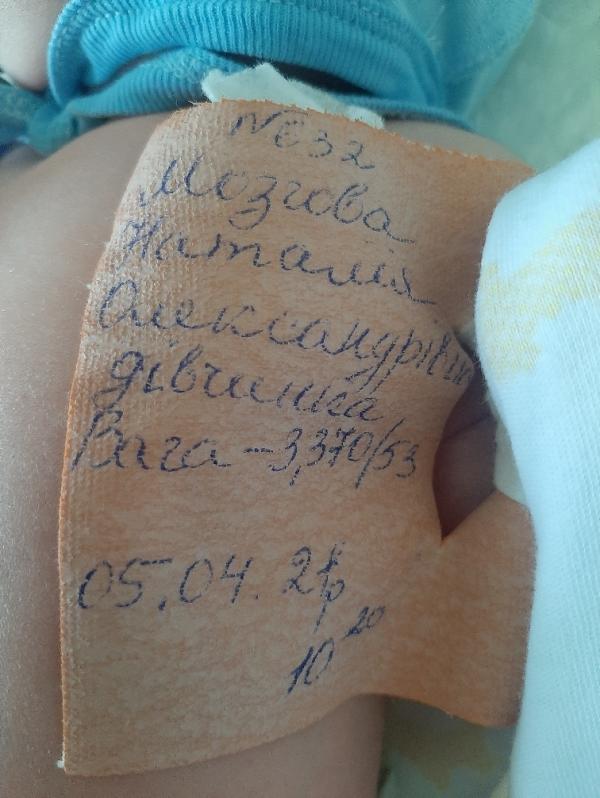 №32
Мозгова
Наталія
Олександрівна
дівчинка
Вага – 3,370/53
05.04. 21р
10 20